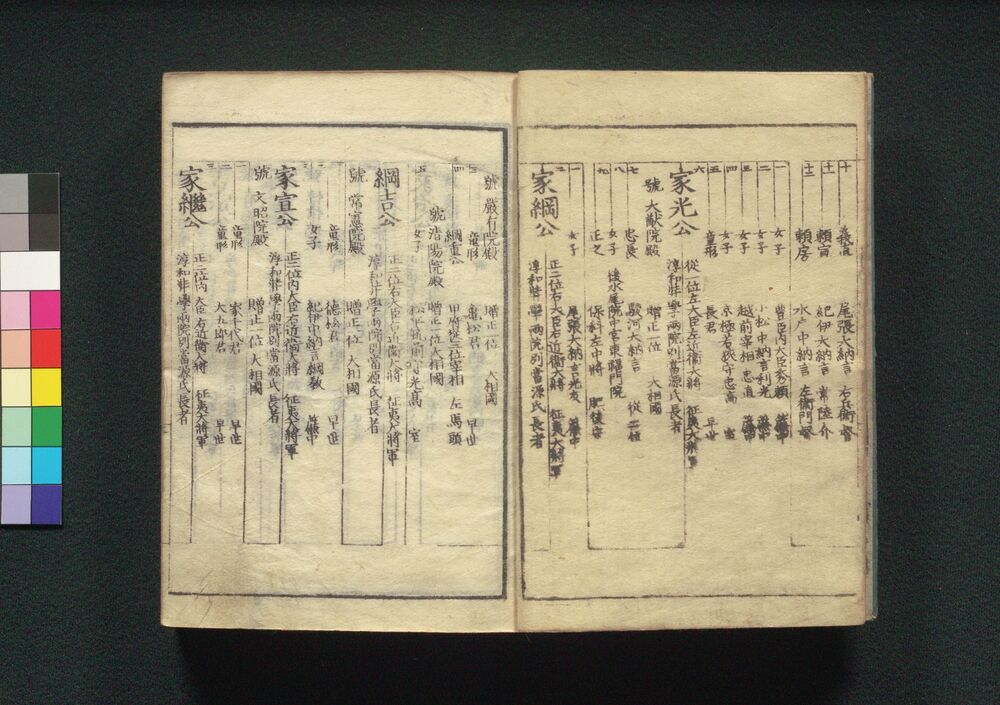 十 義直 尾張大納言 右兵衛督
十一 頼宣 紀伊大納言 常陸介
十二 頼房 水戸中納言 左衛門督
一 女子 豊臣内大臣秀頼 簾中
二 女子 小松中納言利光 簾中
三 女子 越前宰相忠直 簾中
四 女子 京極若狭守忠高 室
五 童形 長君 早世
六 家光公 従一位左大臣左近衛大将 征夷大将軍
淳和奨學両院別當源氏長者
號 大猷院殿 贈正一位 大相國
七 忠長 駿河大納言 従二位
八 女子 後水尾院中宮東福門院
九 正之 保科左中将 肥後守
一 女子 尾張大納言光友 簾中
二 家綱公 正二位右大臣右近衛大将 征夷大将軍
淳和奨學両院別當源氏長者
號 嚴有院殿 贈正一位 大相國
三 童形 亀松君 早世
四 綱重公 甲府従三位宰相 左馬頭
號 清揚院殿 贈正一位大相國
五 女子 松平越前守光高 室
綱吉公 正二位右大臣右近衛大将 征夷大将軍
淳和奨學両院別當源氏長者
號 常憲院殿 贈正一位 大相國
一 童形 徳松君 早世
二 女子 紀伊中納言綱教 簾中
三 家宣公 正二位内大臣右近衛大将 征夷大将軍
淳和奨學両院別當源氏長者
號 文昭院殿 贈正一位 大相國
一 童形 家千代君 早世
二 童形 大五郎君 早世
三 家繼公 正二位内大臣右近衛大将 征夷大将軍
淳和奨學両院別當源氏長者